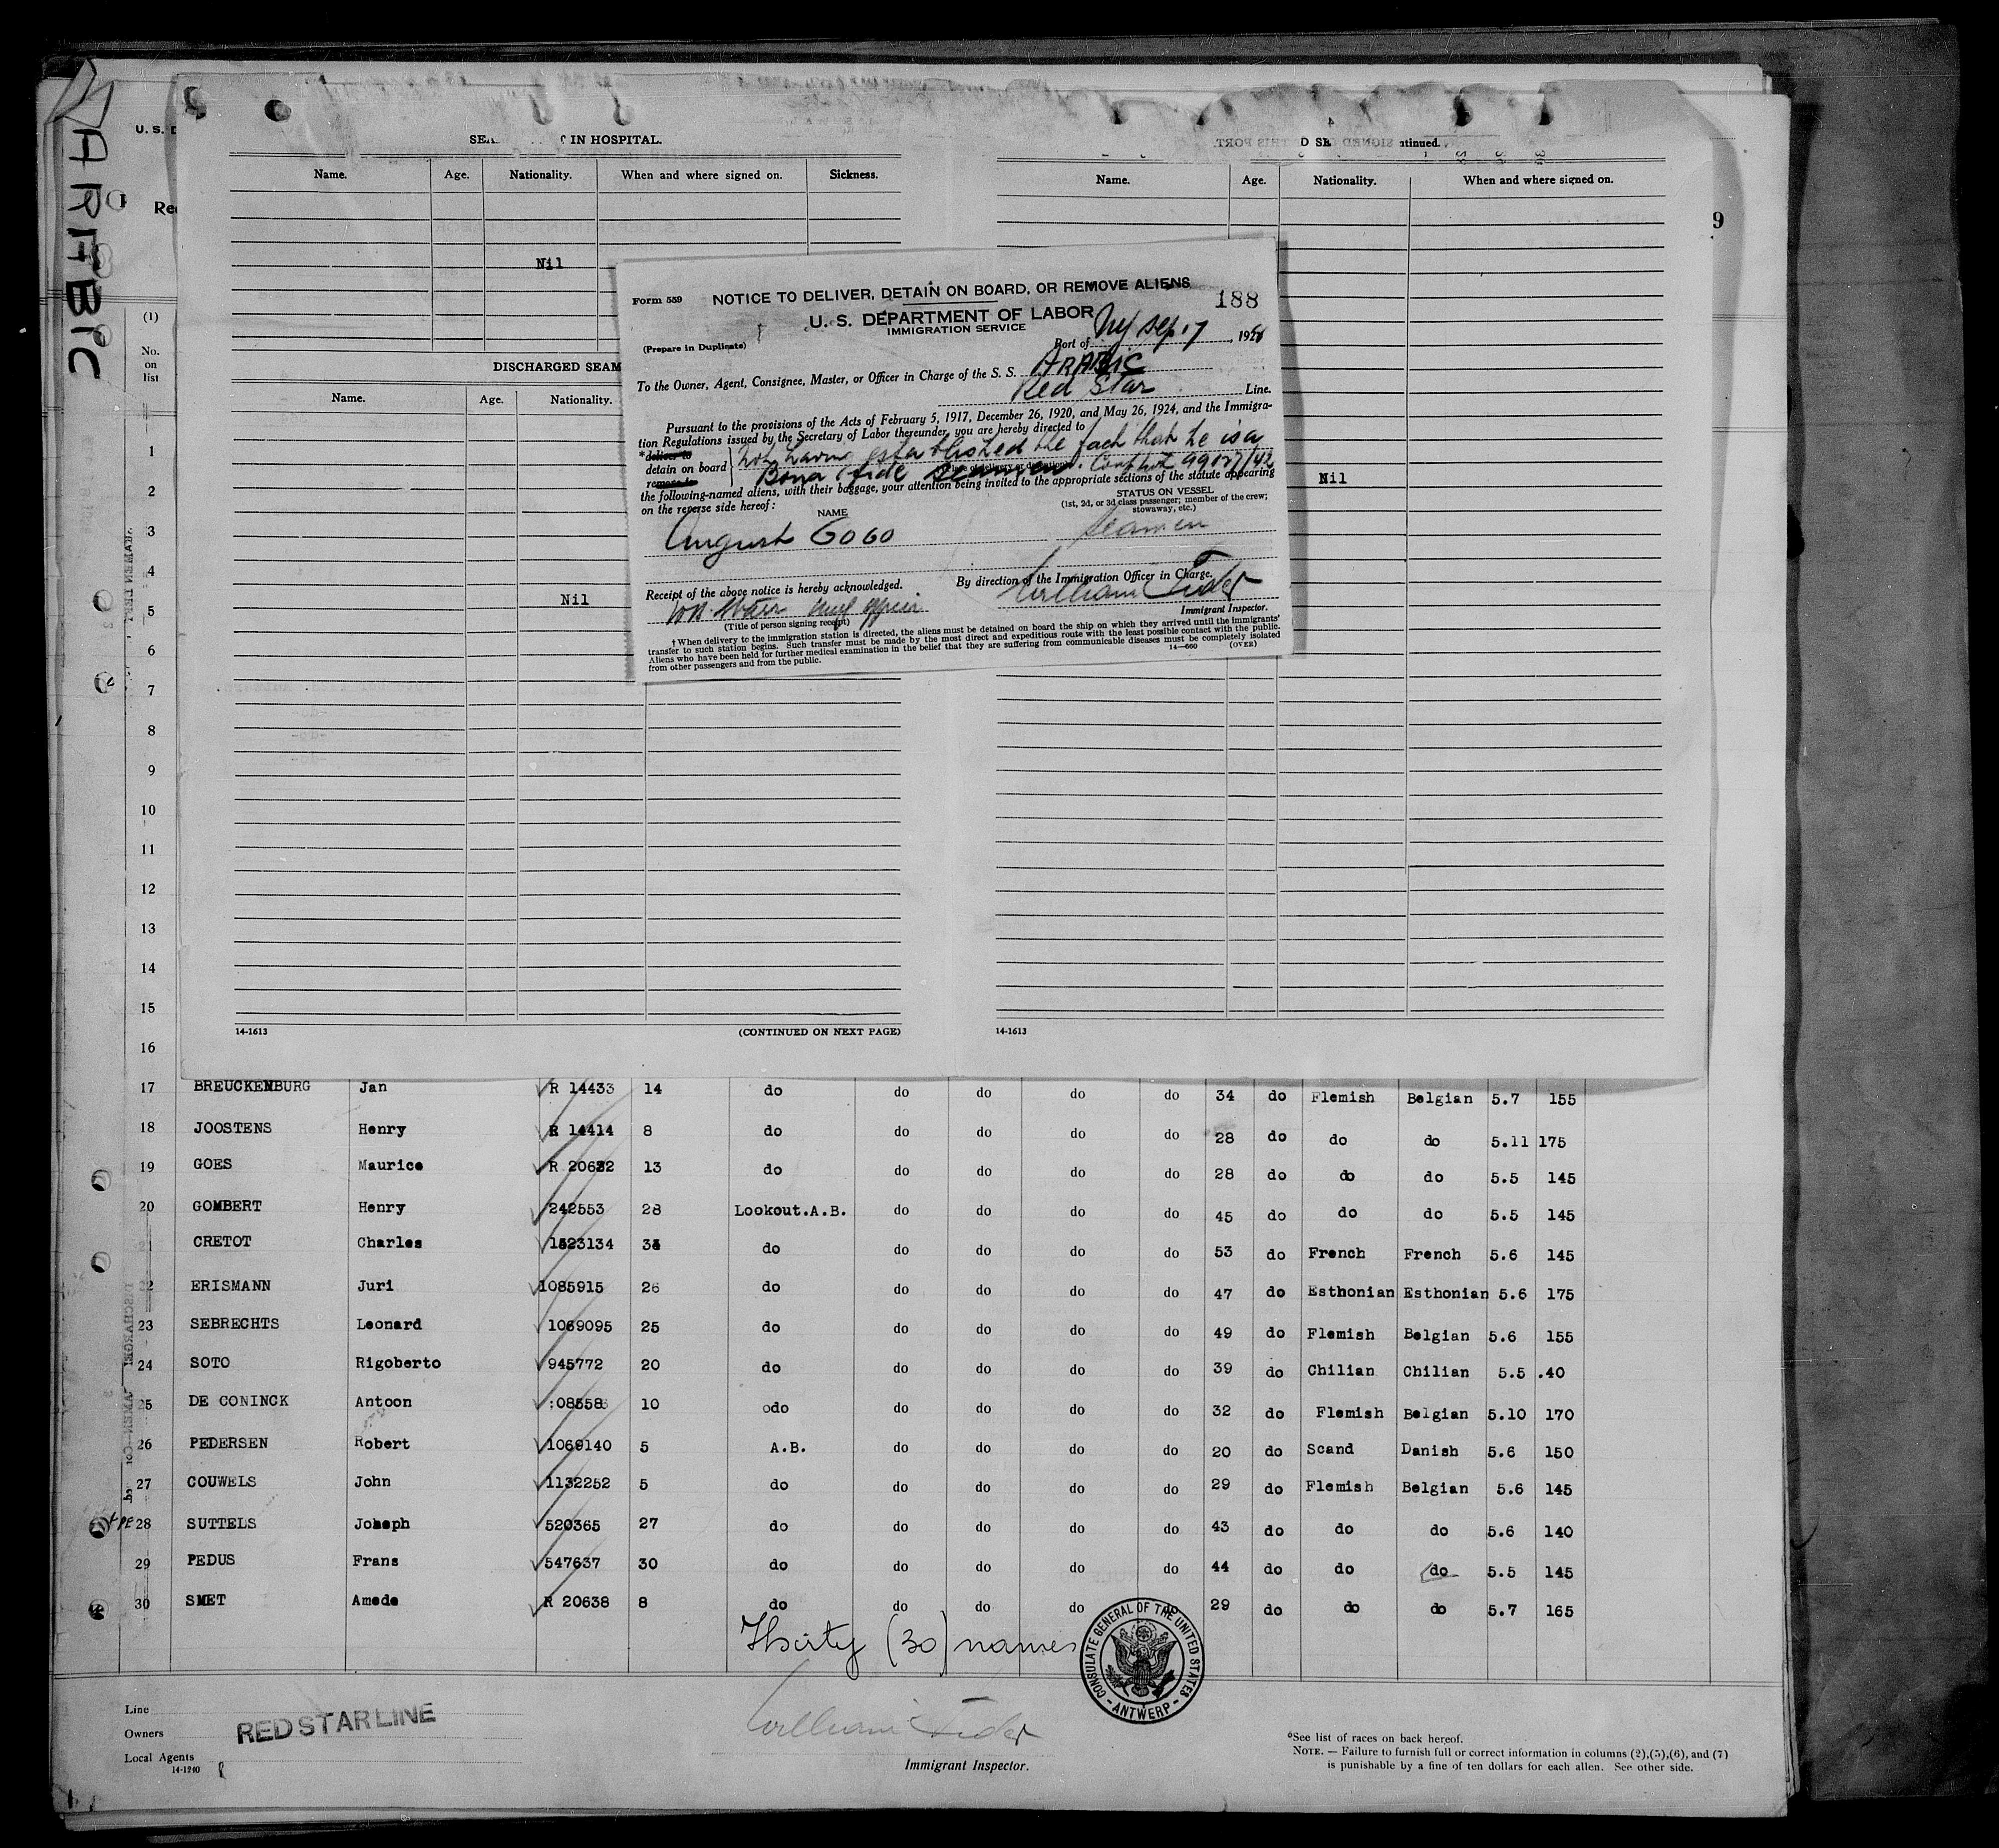 ARABIC
U. S. D
Re
9
(1)
No.
on
list
IN HOSPITAL.
Name. Age. Nationality. When and where signed on. Sickness.
Nil
DISCHARGED SEAM
Name. Age. Nationality.
Nil
14-1613 (CONTINUED ON NEXT PAGE)
ntinued.
Name. Age. Nationality. When and where signed on.
Nil
14-1613
Form 559 NOTICE TO DELIVER, DETAIN ON BOARD, OR REMOVE ALIENS 188
U. S. DEPARTMENT OF LABOR
IMMIGRATION SERVICE
(Prepare in Duplicate) Port of NY Sep. 17, 192
To the Owner, Agent, Consignee, Master, or Officer in Charge of the S. S. ARABIC
Red Star Line.
Pursuant to the provisions of the Acts of February 5, 1917, December 26, 1920, and May 26, 1924, and the Immigra-
tion Regulations issued by the Secretary of Labor thereunder, you are hereby directed to
*deliver to
detain on board
remove to
not having established the fact that he is a
Bona fide seamen. 99127/42
the following-named aliens, with their baggage, your attention being invited to the appropriate sections of the statute appearing
on the reverse side hereof:
NAME
STATUS ON VESSEL
(1st, 2d, or 3d class passenger; member of the crew;
stowaway, etc.)
August Gogo seamen
Receipt of the above notice is hereby acknowledged. By direction of the Immigration Officer in Charge.
William Fider
(Title of person signing receipt) Immigrant Inspector.
†When delivery to the immigration station is directed, the aliens must be detained on board the ship on which they arrived until the immigrants'
transfer to such station begins. Such transfer must be made by the most direct and expeditious route with the least possible contact with the public.
Aliens who have been held for further medical examination in the belief that they are suffering from communicable diseases must be completely isolated
from other passengers and from the public. 14—660 (OVER)
1
2
3
4
5
6
7
8
9
10
11
12
13
14
15
16
17 BREUCKENBURG Jan R 14433 14 do do do do do 34 do Flemish Belgian 5.7 155
18 JOOSTENS Henry R 14414 8 do do do do do 28 do do do 5.11 175
19 GOES Maurice R 20632 13 do do do do do 28 do do do 5.5 145
20 GOMBERT Henry 242553 28 Lookout.A.B. do do do do 45 do do do 5.5 145
21 CRETOT Charles 1523134 34 do do do do do 53 do French French 5.6 145
22 ERISMANN Juri 1085915 26 do do do do do 47 do Esthonian Esthonian 5.6 175
23 SEBRECHTS Leonard 1069095 25 do do do do do 49 do Flemish Belgian 5.6 155
24 SOTO Rigoberto 945772 20 do do do do do 39 do Chilian Chilian 5.5 .40
25 DE CONINCK Antoon :08558 10 odo do do do do 32 do Flemish Belgian 5.10 170
26 PEDERSEN Robert 1069140 5 A.B. do do do do 20 do Scand Danish 5.6 150
27 COUWELS John 1132252 5 do do do do do 29 do Flemish Belgian 5.6 145
28 SUTTELS Joheph 520365 27 do do do do do 43 do do do 5.6 140
29 PEDUS Frans 547637 30 do do do do do 44 do do do 5.5 145
30 SMET Amede R 20638 8 do do do do do 29 do do do 5.7 165
Thirty (30) names
CONSULATE GENERAL OF THE UNITED STATES - ANTWERP -
Line
Owners
Local Agents
14-1240
RED STAR LINE
William Fider
Immigrant Inspector.
*See list of races on back hereof.
NOTE. — Failure to furnish full or correct information in columns (2),(5),(6), and (7)
is punishable by a fine of ten dollars for each alien. See other side.